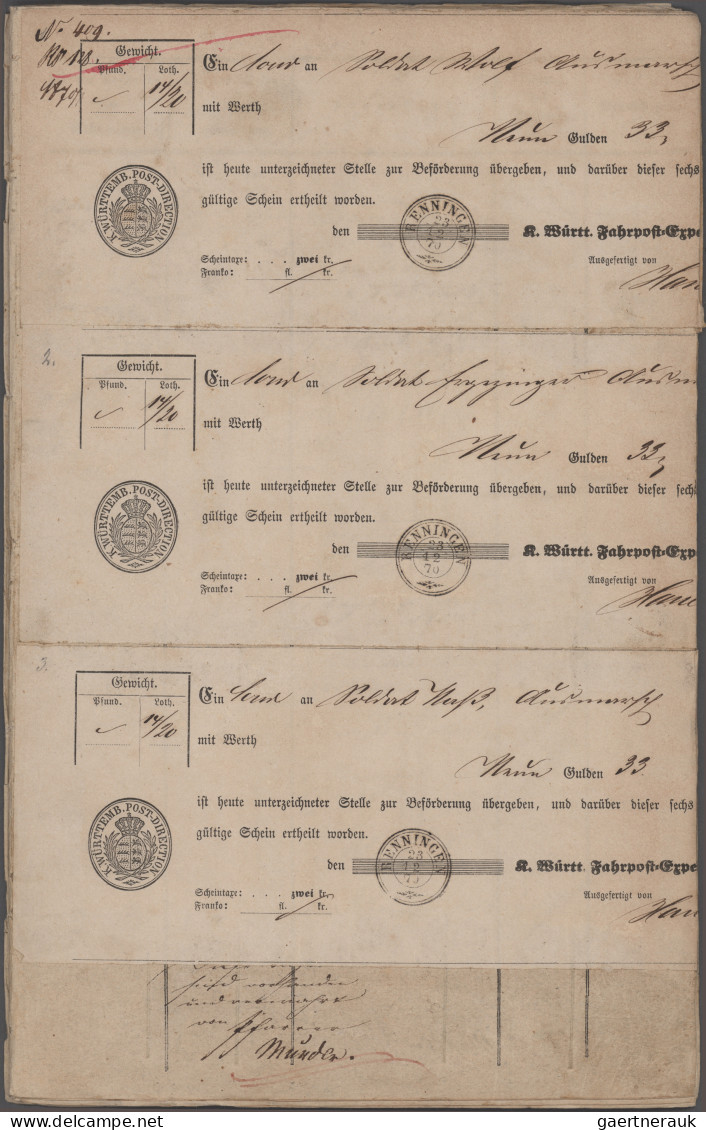 No 409.
Gewicht.
Pfund. Loth.
14/20
Ein an Soldat Wolf Ausmarsch
mit Werth
Neun Gulden 33
ist heute unterzeichneter Stelle zur Beförderung übergeben, und darüber dieser sechs
gültige Schein ertheilt worden.
K. WÜRTTEMB. POST-DIRECTION
den RENNINGEN 23 12 70 K. Württ. Fahrpost-Expe
Scheintaxe: . . . zwei kr. Ausgefertigt von
Franko: fl. kr.
2.
Gewicht.
Pfund. Loth.
14/20
Ein an Soldat Ergezinger
mit Werth
Neun Gulden 33
ist heute unterzeichneter Stelle zur Beförderung übergeben, und darüber dieser sechs
gültige Schein ertheilt worden.
K. WÜRTTEMB. POST-DIRECTION
den RENNINGEN 23 12 70 K. Württ. Fahrpost-Expe
Scheintaxe: . . . zwei kr. Ausgefertigt von
Franko: fl. kr.
3.
Gewicht.
Pfund. Loth.
14/20
Ein an Soldat Naß, Ausmarsch
mit Werth
Neun Gulden 33
ist heute unterzeichneter Stelle zur Beförderung übergeben, und darüber dieser sechs
gültige Schein ertheilt worden.
K. WÜRTTEMB. POST-DIRECTION
den RENNINGEN 23 12 70 K. Württ. Fahrpost-Expe
Scheintaxe: . . . zwei kr. Ausgefertigt von
Franko: fl. kr.
sind vorhanden
und verwahrt
von Pfarrer
Mundle.
delcampe.net
gaertnerauk